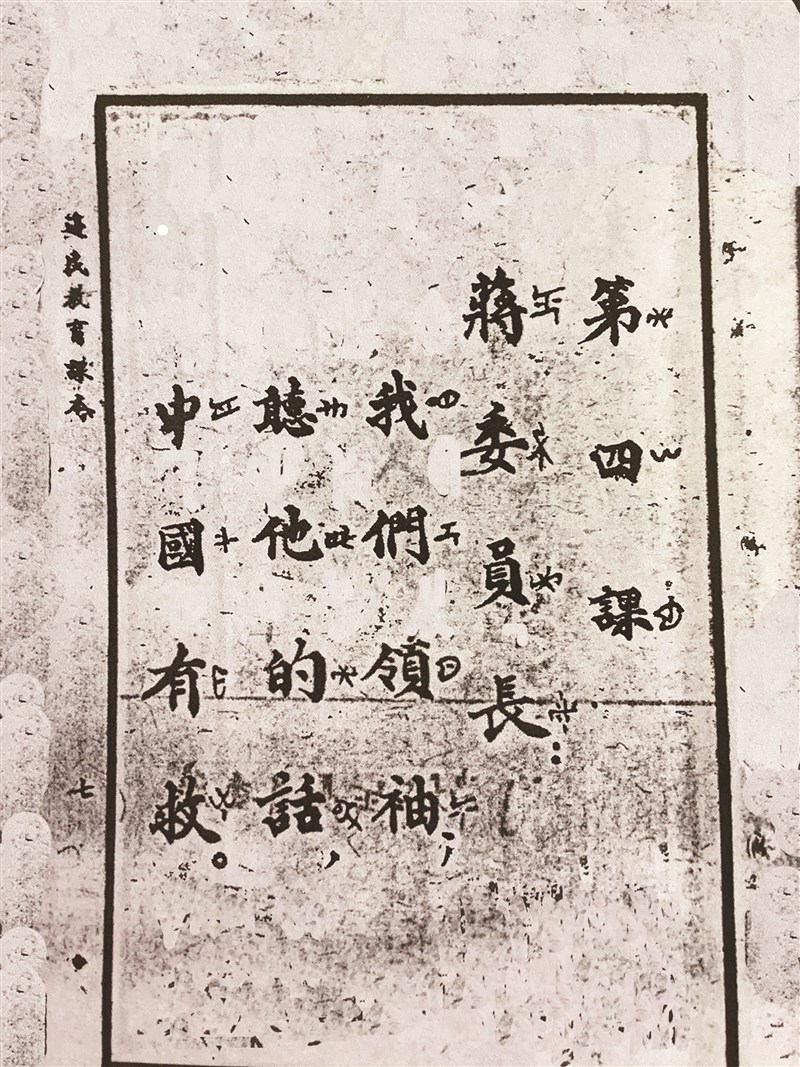 第四課
蔣委員長：
我們領袖；
聽他的話，
中國有救。
民教育課本
七